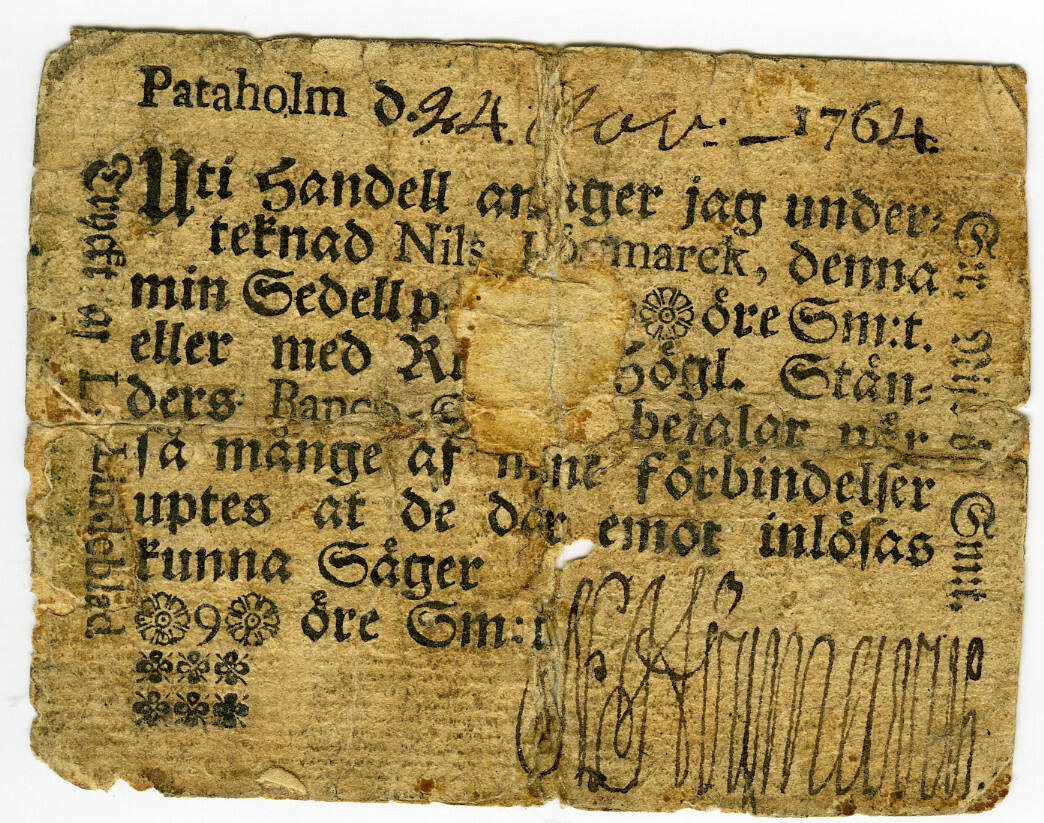 Pataholm d. 24. Nov: 1764.
Uti Handell antager jag under=
teknad Nils Högmarck, denna
min Sedell öre Sm:t.
eller med Högl. Stän=
ders Banco= betalar når
så månge af mine förbindelser
uptes at de der emot inlösas
kunna Säger
9 öre Sm:t
Trydkt af L. Lindeblad
Smt.